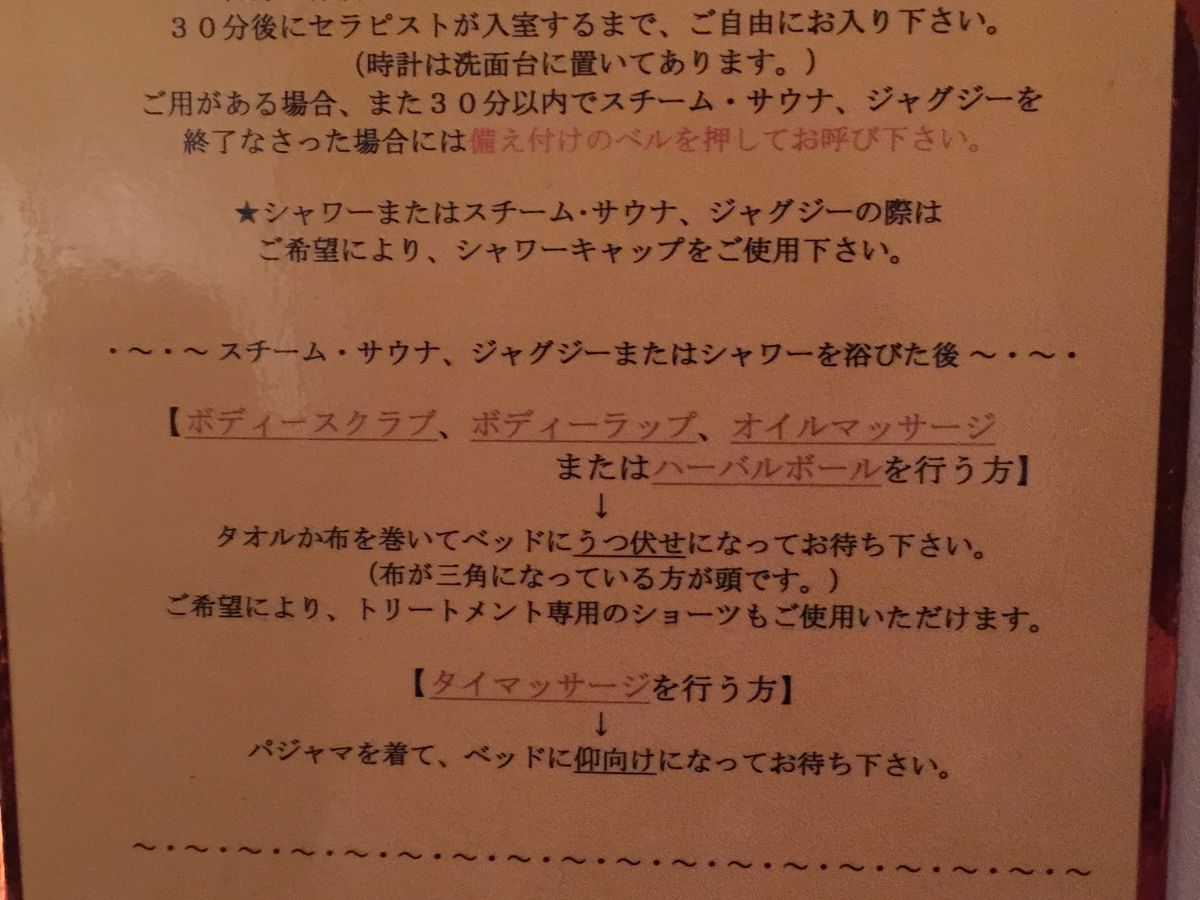 ３０分後にセラピストが入室するまで、ご自由にお入り下さい。
（時計は洗面台に置いてあります。）
ご用がある場合、また３０分以内でスチーム・サウナ、ジャグジーを
終了なさった場合には備え付けのベルを押してお呼び下さい。
★シャワーまたはスチーム・サウナ、ジャグジーの際は
ご希望により、シャワーキャップをご使用下さい。
・～・～ スチーム・サウナ、ジャグジーまたはシャワーを浴びた後 ～・～・
【ボディースクラブ、ボディーラップ、オイルマッサージ
またはハーバルボールを行う方】
↓
タオルか布を巻いてベッドにうつ伏せになってお待ち下さい。
（布が三角になっている方が頭です。）
ご希望により、トリートメント専用のショーツもご使用いただけます。
【タイマッサージを行う方】
↓
パジャマを着て、ベッドに仰向けになってお待ち下さい。
～・～・～・～・～・～・～・～・～・～・～・～・～・～・～・～・～・～